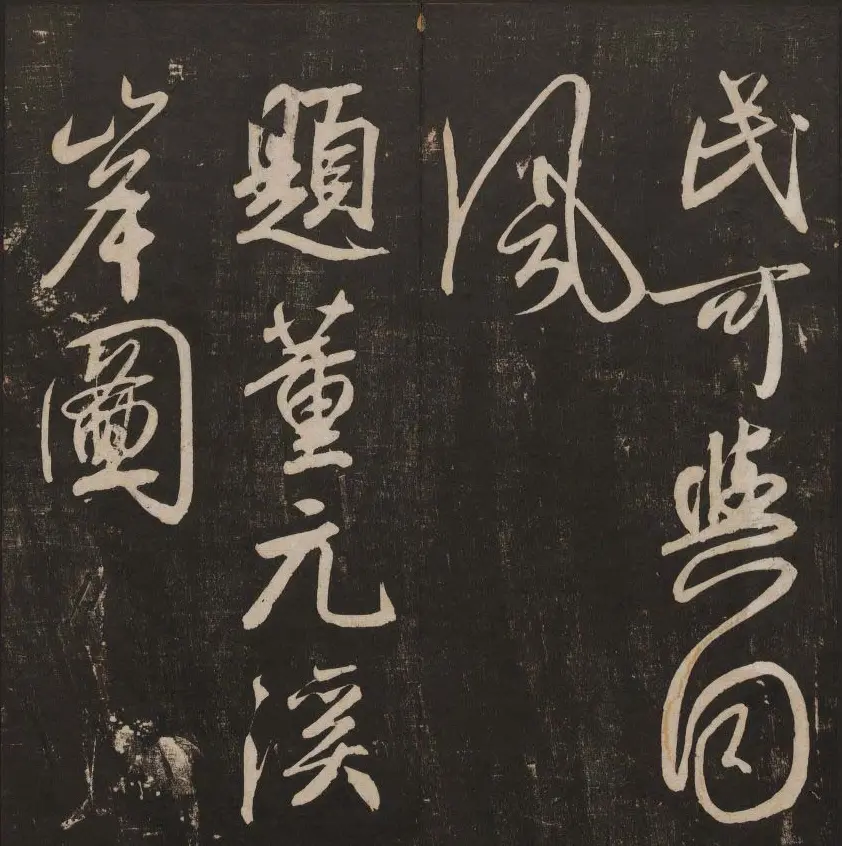 民可與回
風
題董元溪
岸圖